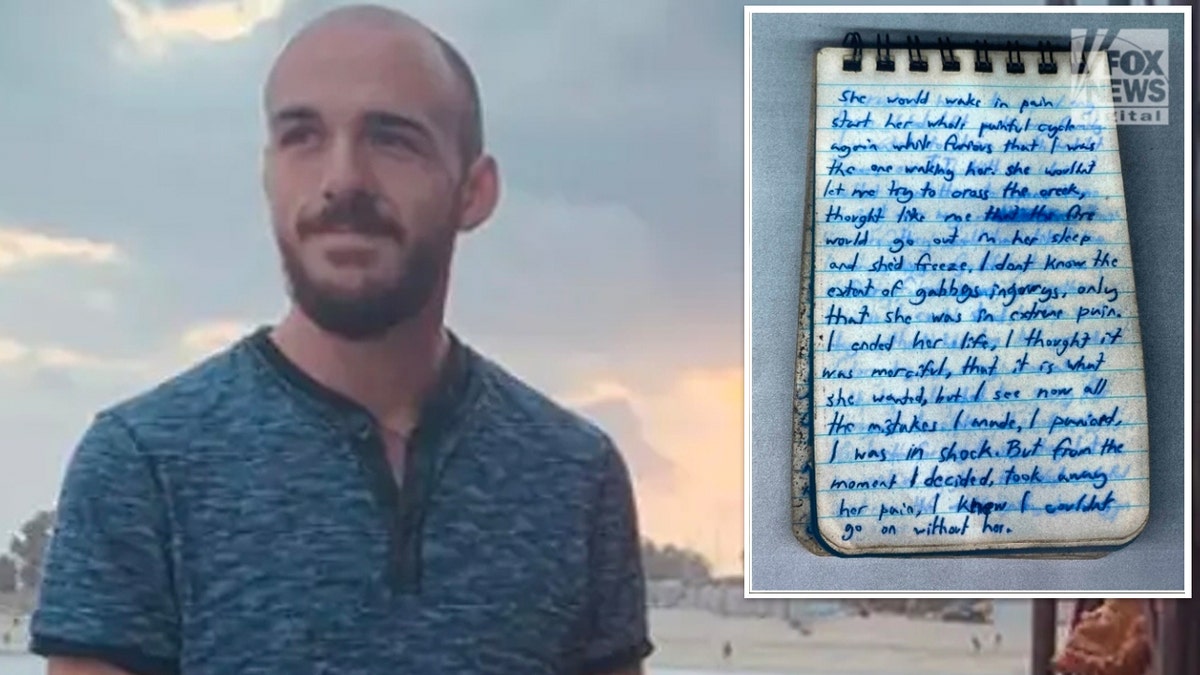 FOX
NEWS
digital
She would wake in pain
start her whole painful cycle
again while furious that I was
the one waking her. she wouldnt
let me try to cross the creek,
thought like me that the fire
would go out in her sleep
and she'd freeze. I dont know the
extent of gabbys ingourys, only
that she was in extreme pain.
I ended her life, I thought it
was merciful, that it is what
she wanted, but I see now all
the mistakes I made, I paniced,
I was in shock. But from the
moment I decided, took away
her pain, I knew I couldnt
go on without her.